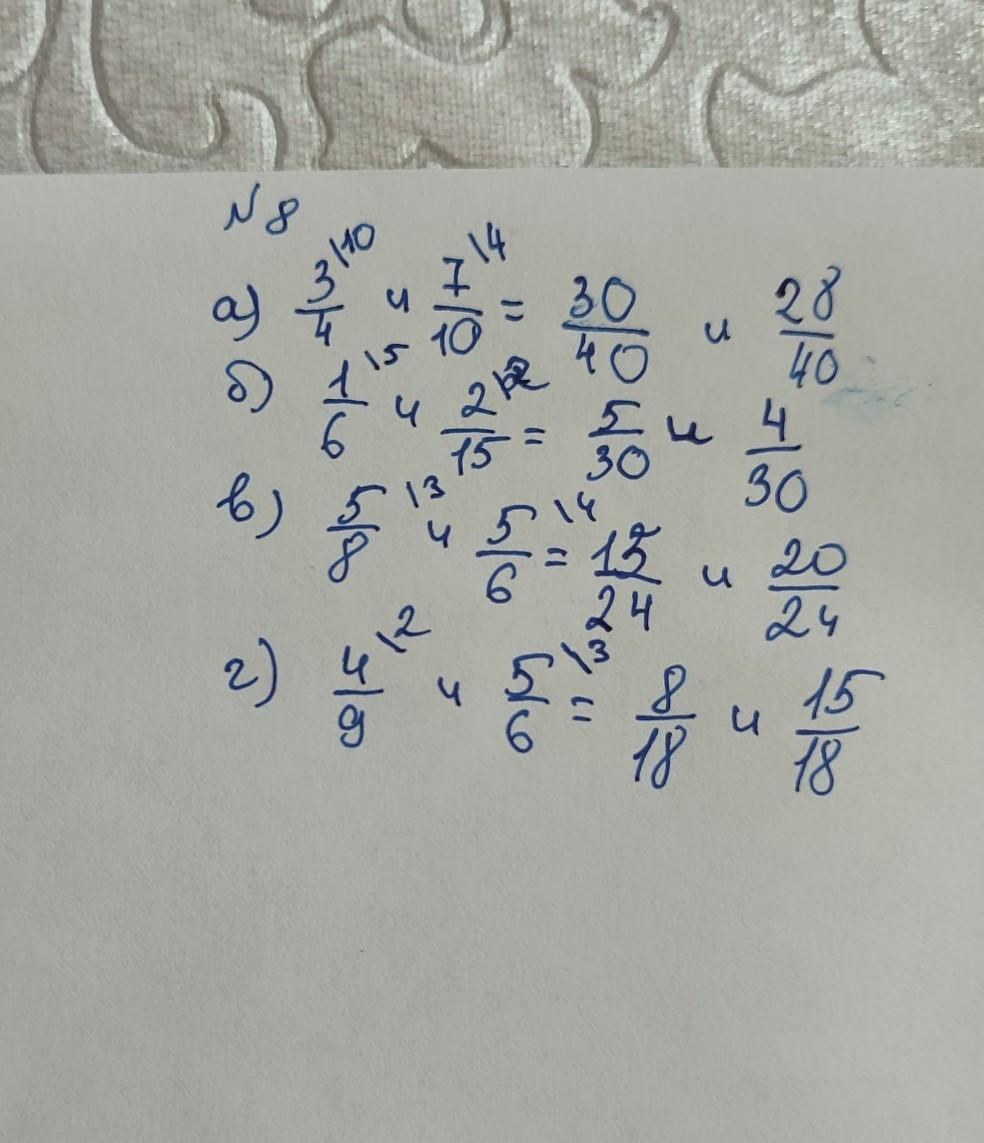 № 8
а) 3/4 \10 и 7/10 \4 = 30/40 и 28/40
б) 1/6 \5 и 2/15 \2 = 5/30 и 4/30
в) 5/8 \3 и 5/6 \4 = 15/24 и 20/24
г) 4/9 \2 и 5/6 \3 = 8/18 и 15/18